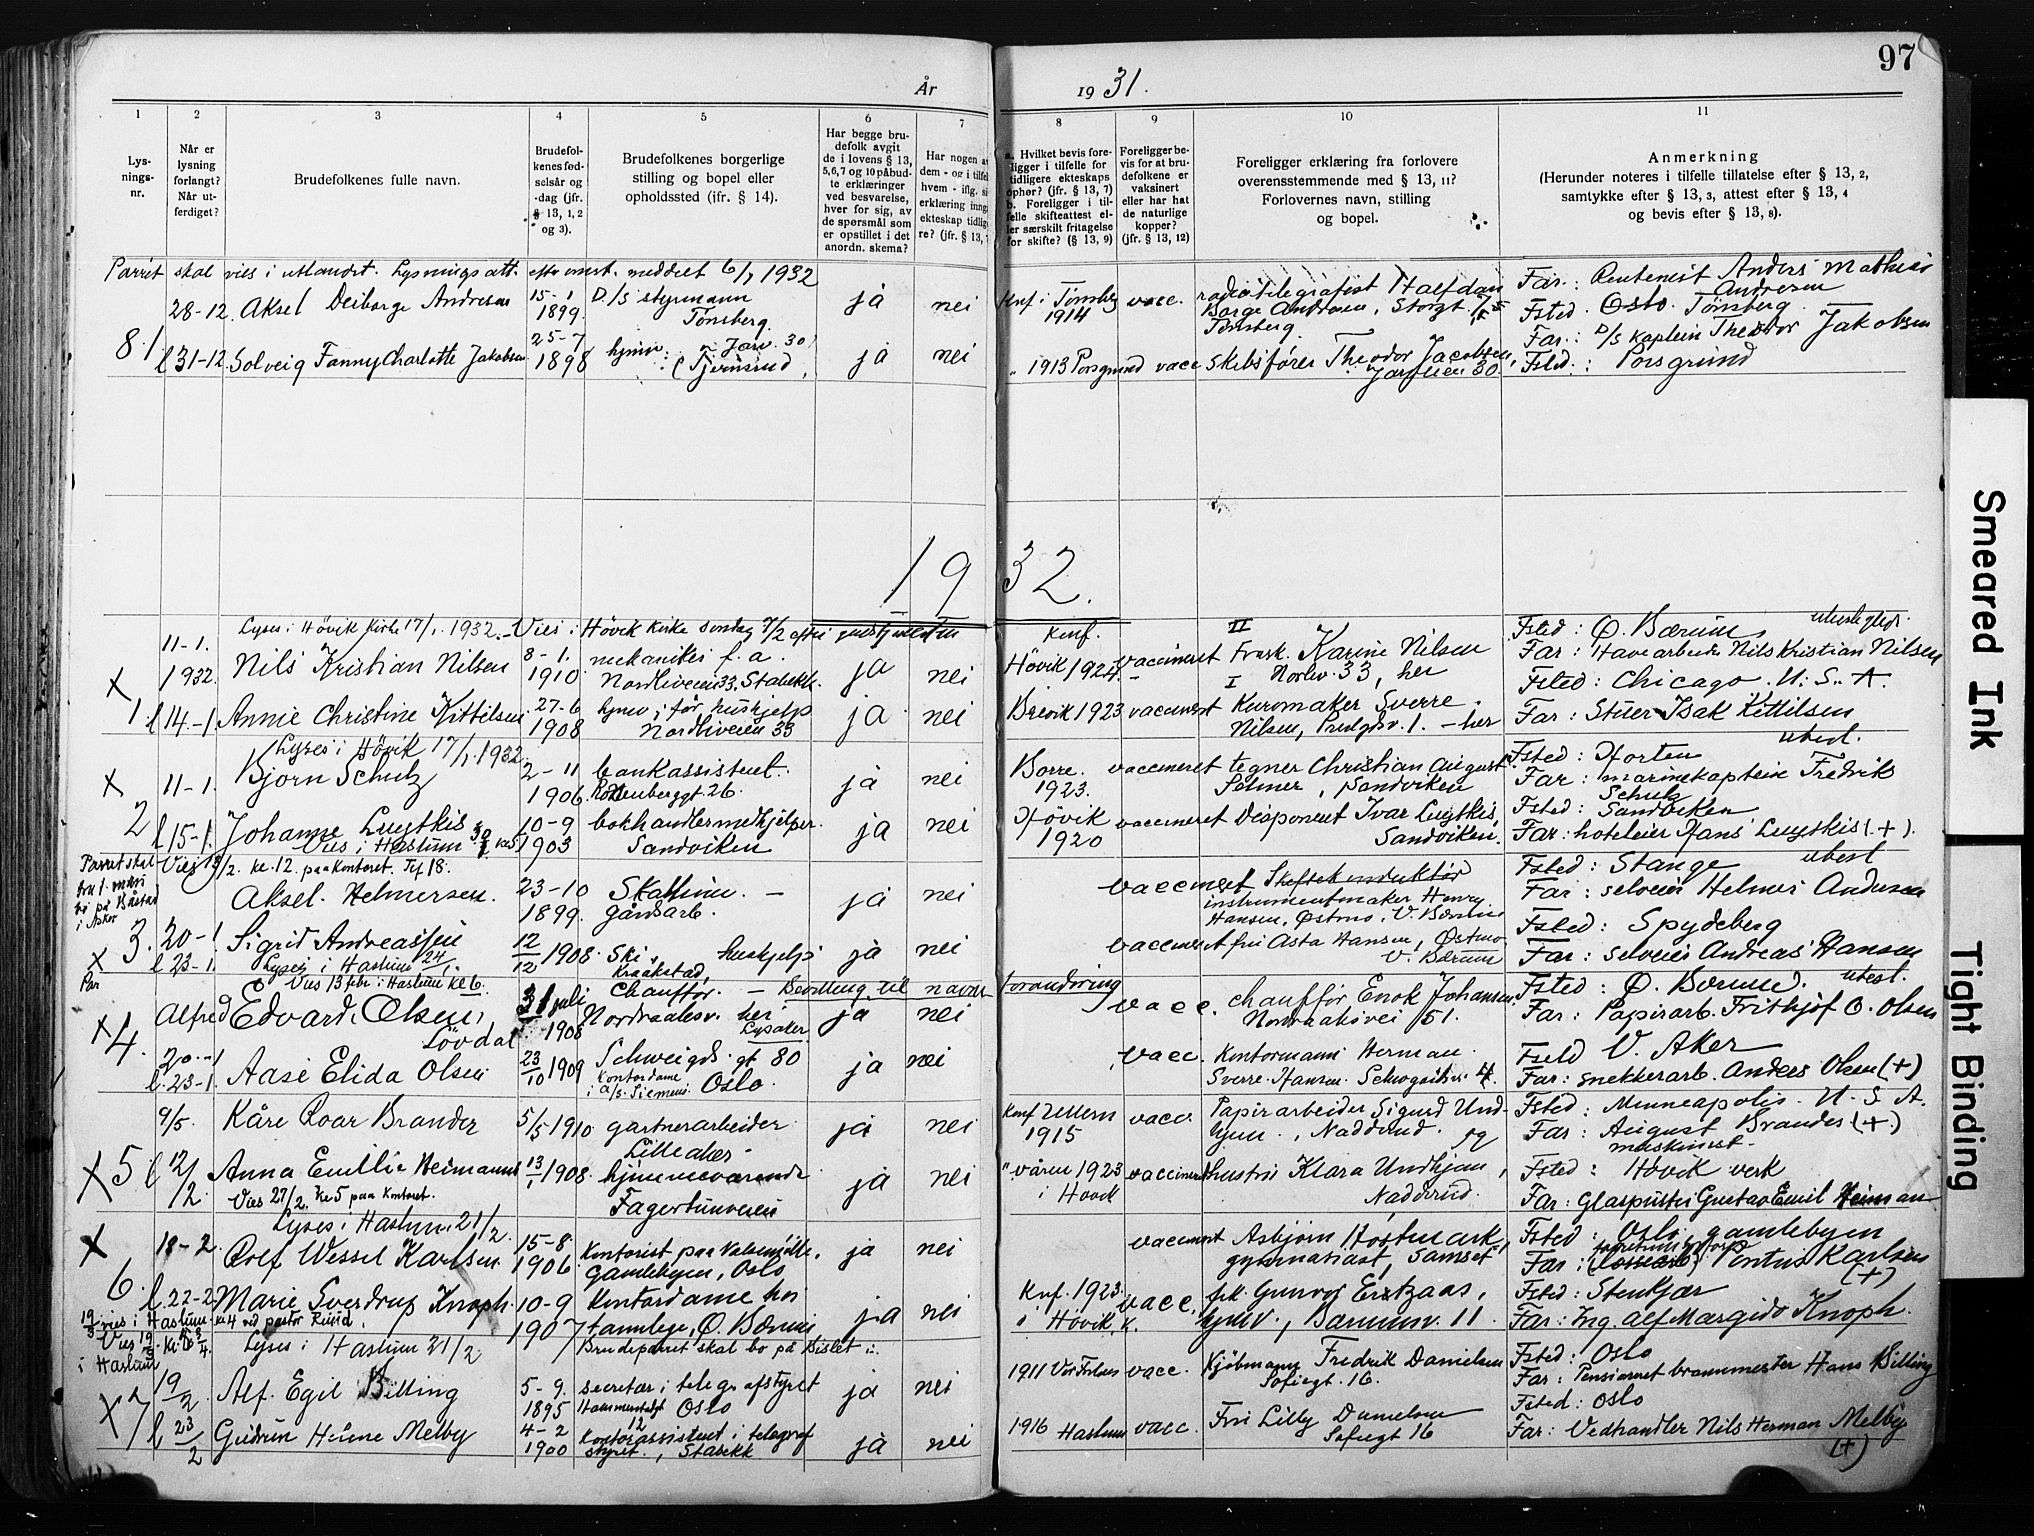 97
År 1931.
1 2 3 4 5 6 7 8 9 10 11
Lys-
nings-
nr.
Når er
lysning
forlangt?
Når ut-
ferdiget?
Brudefolkenes fulle navn.
Brudefol-
kenes fød-
selsår og
-dag (jfr.
§ 13, 1, 2
og 3).
Brudefolkenes borgerlige
stilling og bopel eller
opholdssted (jfr. § 14).
Har begge bru-
defolk avgit
de i lovens § 13,
5,6,7 og 10 påbud-
te erklæringer
ved besvarelse,
hver for sig, av
de spørsmål som
er opstillet i det
anordn. skema?
Har nogen a
dem - og i tilfel
hvem - iflg. si
erklæring inng
ekteskap tidlig
re? (jfr. § 13,
a. Hvilket bevis fore-
ligger i tilfelle for
tidligere ekteskaps
ophør? (jfr. § 13, 7)
b. Foreligger i til-
felle skifteattest el-
ler særskilt fritagelse
for skifte? (§ 13, 9)
Foreligger be-
vis for at bru-
defolkene er
vaksinert
eller har hat
de naturlige
kopper?
(jfr. § 13, 12)
Foreligger erklæring fra forlovere
overensstemmende med § 13, 11?
Forlovernes navn, stilling
og bopel.
Anmerkning
(Herunder noteres i tilfelle tillatelse efter § 13, 2,
samtykke efter § 13, 3, attest efter § 13, 4
og bevis efter § 13, 8).
Parret skal vies i utlandet. Lysningsatt. meddelt 6/1 1932
28-12. Aksel Deiborge Andresen 15-1 1899. D/S styrmann Tønsberg. ja nei Knf. i Tønsberg 1914 vacc. radiotelegrafist Halfdan Borge Andresen, Storgt. 75 Tønsberg. Far: Rentenist Anders Mathias Andresen Fsted. Oslo. Tønsberg.
81 l 31-12. Solveig Fanny Charlotte Jakobsen 25-7 1898 hjmv: Jarv. 30 ja nei " 1913 Porsgrund vacc Skibsfører Theodor Jacobsen, 30. Far: D/S Kaptein Theodor Jakobsen Fsted.: Porsgrund
1932.
Lyses i Høvik Kirke 17/1. 1932. - Vies i Høvik Kirke søndag 7/2 efter gudstjenesten
x 1 11-1. 1932. Nils Kristian Nilsen 8-1. 1910 mekaniker f. a. Nordliveien 33. Stabekk. ja nei Knf. Høvik 1924. vaccineret II Frøk. Karine Nilsen Norliv. 33, her Fsted: Ø. Bærum Far: Havearbeider Nils Kristian Nilsen
l 14-1. Annie Christine Kittilsen 27-6 1908 hjmv; før hushjelp Nordliveien 33 ja. nei Brevik 1923 vaccineret I Kuromaker Sverre Nilsen, 1. - her Fsted: Chicago. U. S. A. Far: Stuer Isak Kittilsen
Lyses i Høvik 17/1. 1932.
x 2 11-1. Bjørn Schulz 2-11 1906. bankassistent. 26. ja nei Borre. 1923. vaccineret tegner Christian August Selmer, Sandviken Fsted: Horten ubesl. Far: marinekaptein Fredrik Schulz
l 15-1. Johanne Lugtkis 10-9 1903 bokhandlermedhjelper. Sandviken ja nei Høvik 1920 vaccineret Disponent Ivar Lugtkis, Sandviken. Fsted: Sandviken Far: hoteleier Hans Lugtkis (+).
Vies i Haslum
Vies 13/2. kl. 12. paa kontoret. Tlf 18.
Parret skal
bo på Båstad
x 3. 20-1 Aksel. Helmersen. 23-10 1899. gårdsarb. ja nei vaccineret instrumentmaker Henry Hansen, Østmo, V. Bærum Fsted: Stange ubesl Far: selveier Helmer Andersen
l 23-1. Sigrid Andreassen 12/12 1908. Ski, Kraakstad huskjelp ja nei vaccineret frk Asta Hansen, Østmo V. Bærum Fsted: Spydeberg Far: selveier Andreas Hansen
Lyses i Haslum 24/1.
Vies 13 febr i Haslum kl 6.
x 4. Alfred Edvard Olsen, Løvdal 31 juli 1908 Chauffør. - Bevilling til navneforandring Nordraaksv. her Lysaker ja nei vacc. Chauffør Enok Johansen Nordraaksvei 51. Fsted: Ø. Bærum. ubesl. Far: Papirarb. Frithjof O. Olsen
20-1 l. 23-1. Aase Elida Olsen 23/10 1909 Schweigds. gt. 80 Kontordame i A/S. Siemens. Oslo. ja nei vacc. Kontormann Herman Sverre Hansen. Fsted V. Aker Far: snekkerarb. Anders Olsen (+)
x 5 9/5 Kåre Roar Brander 5/5 1910 gartnerarbeider Lilleaker ja nei Knf Ullern 1915 vacc. Papirarbeider Sigurd Undhjem, Nadderud. og Fsted: Minneapolis. U. S. A. Far: August Brander (+) maskinist.
l 12/2. Anna Emilie Heimann 13/1 1908. hjemmeværende Fagertunveien ja nei " våren 1923 i Høvik vaccineret hustru Klara Undhjem, Nadderud. Fsted: Høvik verk Far: Glaspuster Gustav Emil Heimann
Vies 27/2. kl 5 paa kontoret.
Lyses i Haslum 21/2.
x 6. 18-2. Rolf Wessel Karlsen 15-8. 1906. Kontorist paa Valsemølle. Gamlebyen, Oslo ja nei vaccineret Asbjørn Høstmark, gymnasiast, Samset Fsted: Oslo, gamlebyen Far: Pontus Karlsen (+)
l. 22-2 Marie Sverdrup Knoph. 10-9 1907 Kontordame hos tannlege, Ø. Bærum ja nei Knf. 1923. i Høvik. vacc. frk. Gunvor Ertzaas, hjmv., Bærumsv. 11. Fsted: Stenkjær Far: Ing. Alf Margido Knoph.
19/3 vies i Haslum kl 4 ved pastor Rund.
Lyses i Haslum 21/2
Brudeparret skal bo på Bislet
x 7 19/2 Alf. Egil Billing 5-9. 1895 secretær i telegrafstyret Oslo ja nei 1911 Vor Frelsers vacc. Kjøbmann Fredrik Danielsen Sofiegt. 16. Fsted: Oslo Far: Pensioneret brannmester Hans Billing
l 23/2 Gudrun Helene Melby 4-2 1900 Kontorassistent i telegrafstyret, Stabekk ja nei 1916 Haslum vacc. Fru Lilly Danielsen Sofiegt 16 Fsted: Oslo Far: Vedhandler Nils Herman Melby (+)
Smeared Ink
Tight Binding